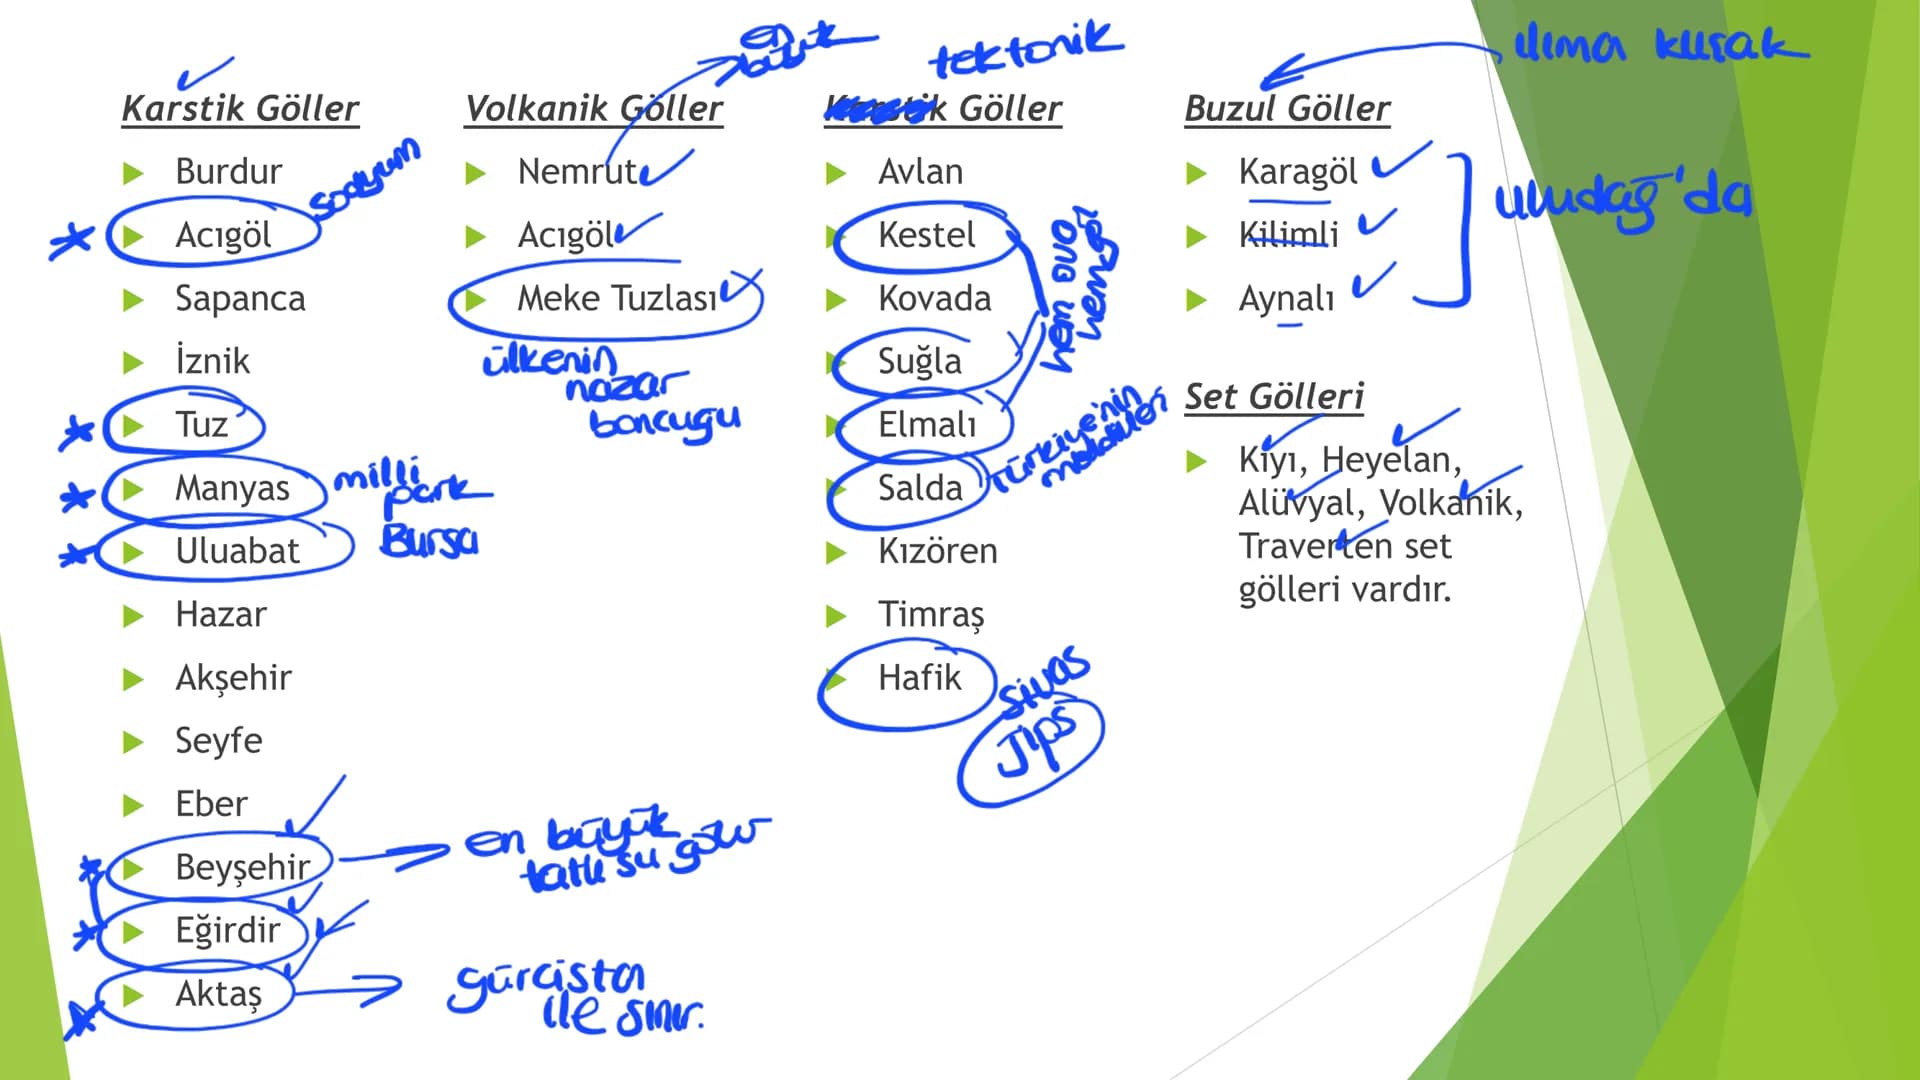 Karstik Göller
Burdur
Acıgöl
sodyum
Sapanca
İznik
Tuz
Manyas
milli
park
Uluabat
Bursa
Hazar
Akşehir
Seyfe
Eber
Beyşehir
en büyük
tatlı su gölü
Eğirdir
Aktaş
gürcista
ile sınır.
Volkanik Göller
en
büyük
Nemrut
Acıgöl
Meke Tuzlası
ülkenin
nazar
boncugu
tektonik
Göller
Avlan
Kestel
Kovada
Suğla
Elmalı
hem ova
hem göl
Salda
Türkiye'nin
maldivleri
Kızören
Timraş
Hafik
Sivas
Jips
ılıma kuşak
Buzul Göller
Karagöl
Kilimli
Aynalı
uludağ'da
Set Gölleri
Kıyı, Heyelan,
Alüvyal, Volkanik,
Traverten set
gölleri vardır.